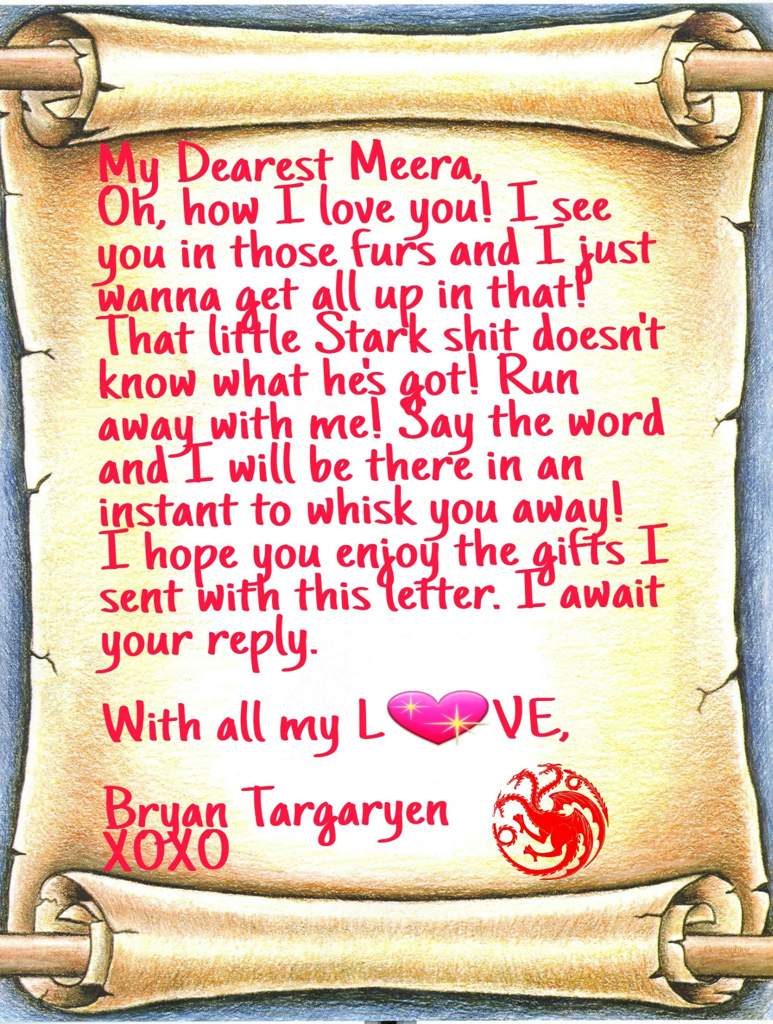 My Dearest Meera,
Oh, how I love you! I see
you in those furs and I just
wanna get all up in that!
That little Stark shit doesn't
know what he's got! Run
away with me! Say the word
and I will be there in an
instant to whisk you away!
I hope you enjoy the gifts I
sent with this letter. I await
your reply.
With all my L💖VE,
Bryan Targaryen
XOXO